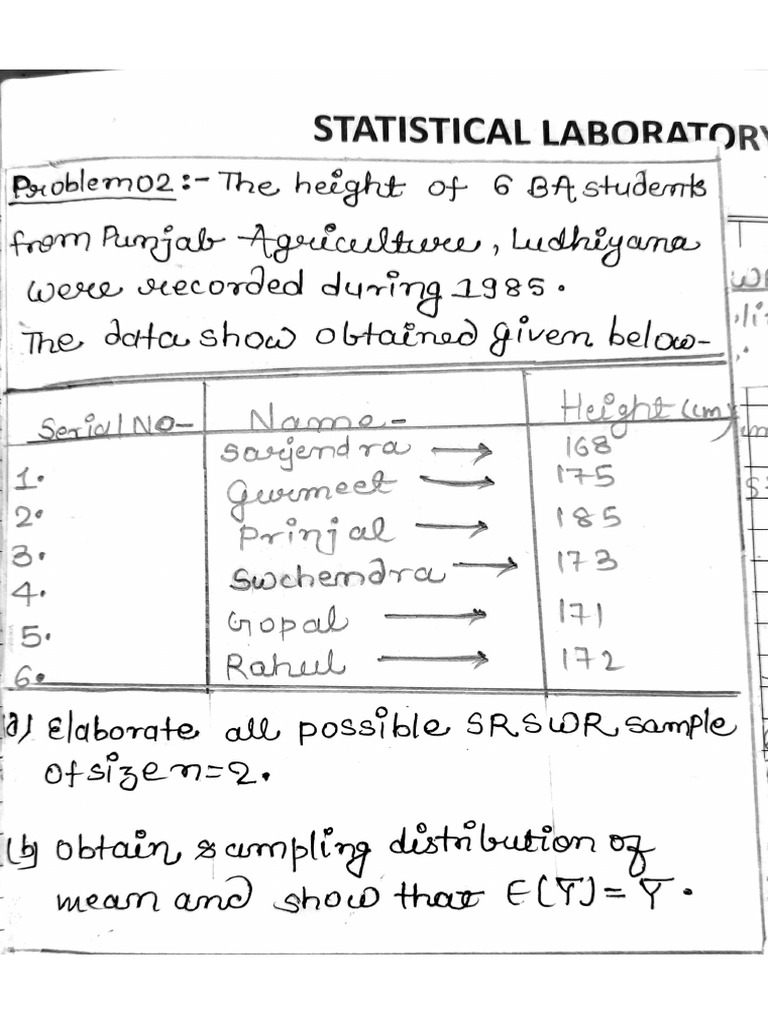 STATISTICAL LABORATORY
Problem 02:- The height of 6 BA students
from Punjab Agriculture, Ludhiyana
were recorded during 1985.
The data show obtained given below-
Serial No- Name- Height (cm)
1. Sarjendra → 168
2. Gurmeet → 175
3. Prinjal → 185
4. Swchendra → 173
5. Gopal → 171
6. Rahul → 172
a) Elaborate all possible SRSWR sample
of size n=2.
(b) obtain sampling distribution of
mean and show that E(Ȳ) = Ȳ.